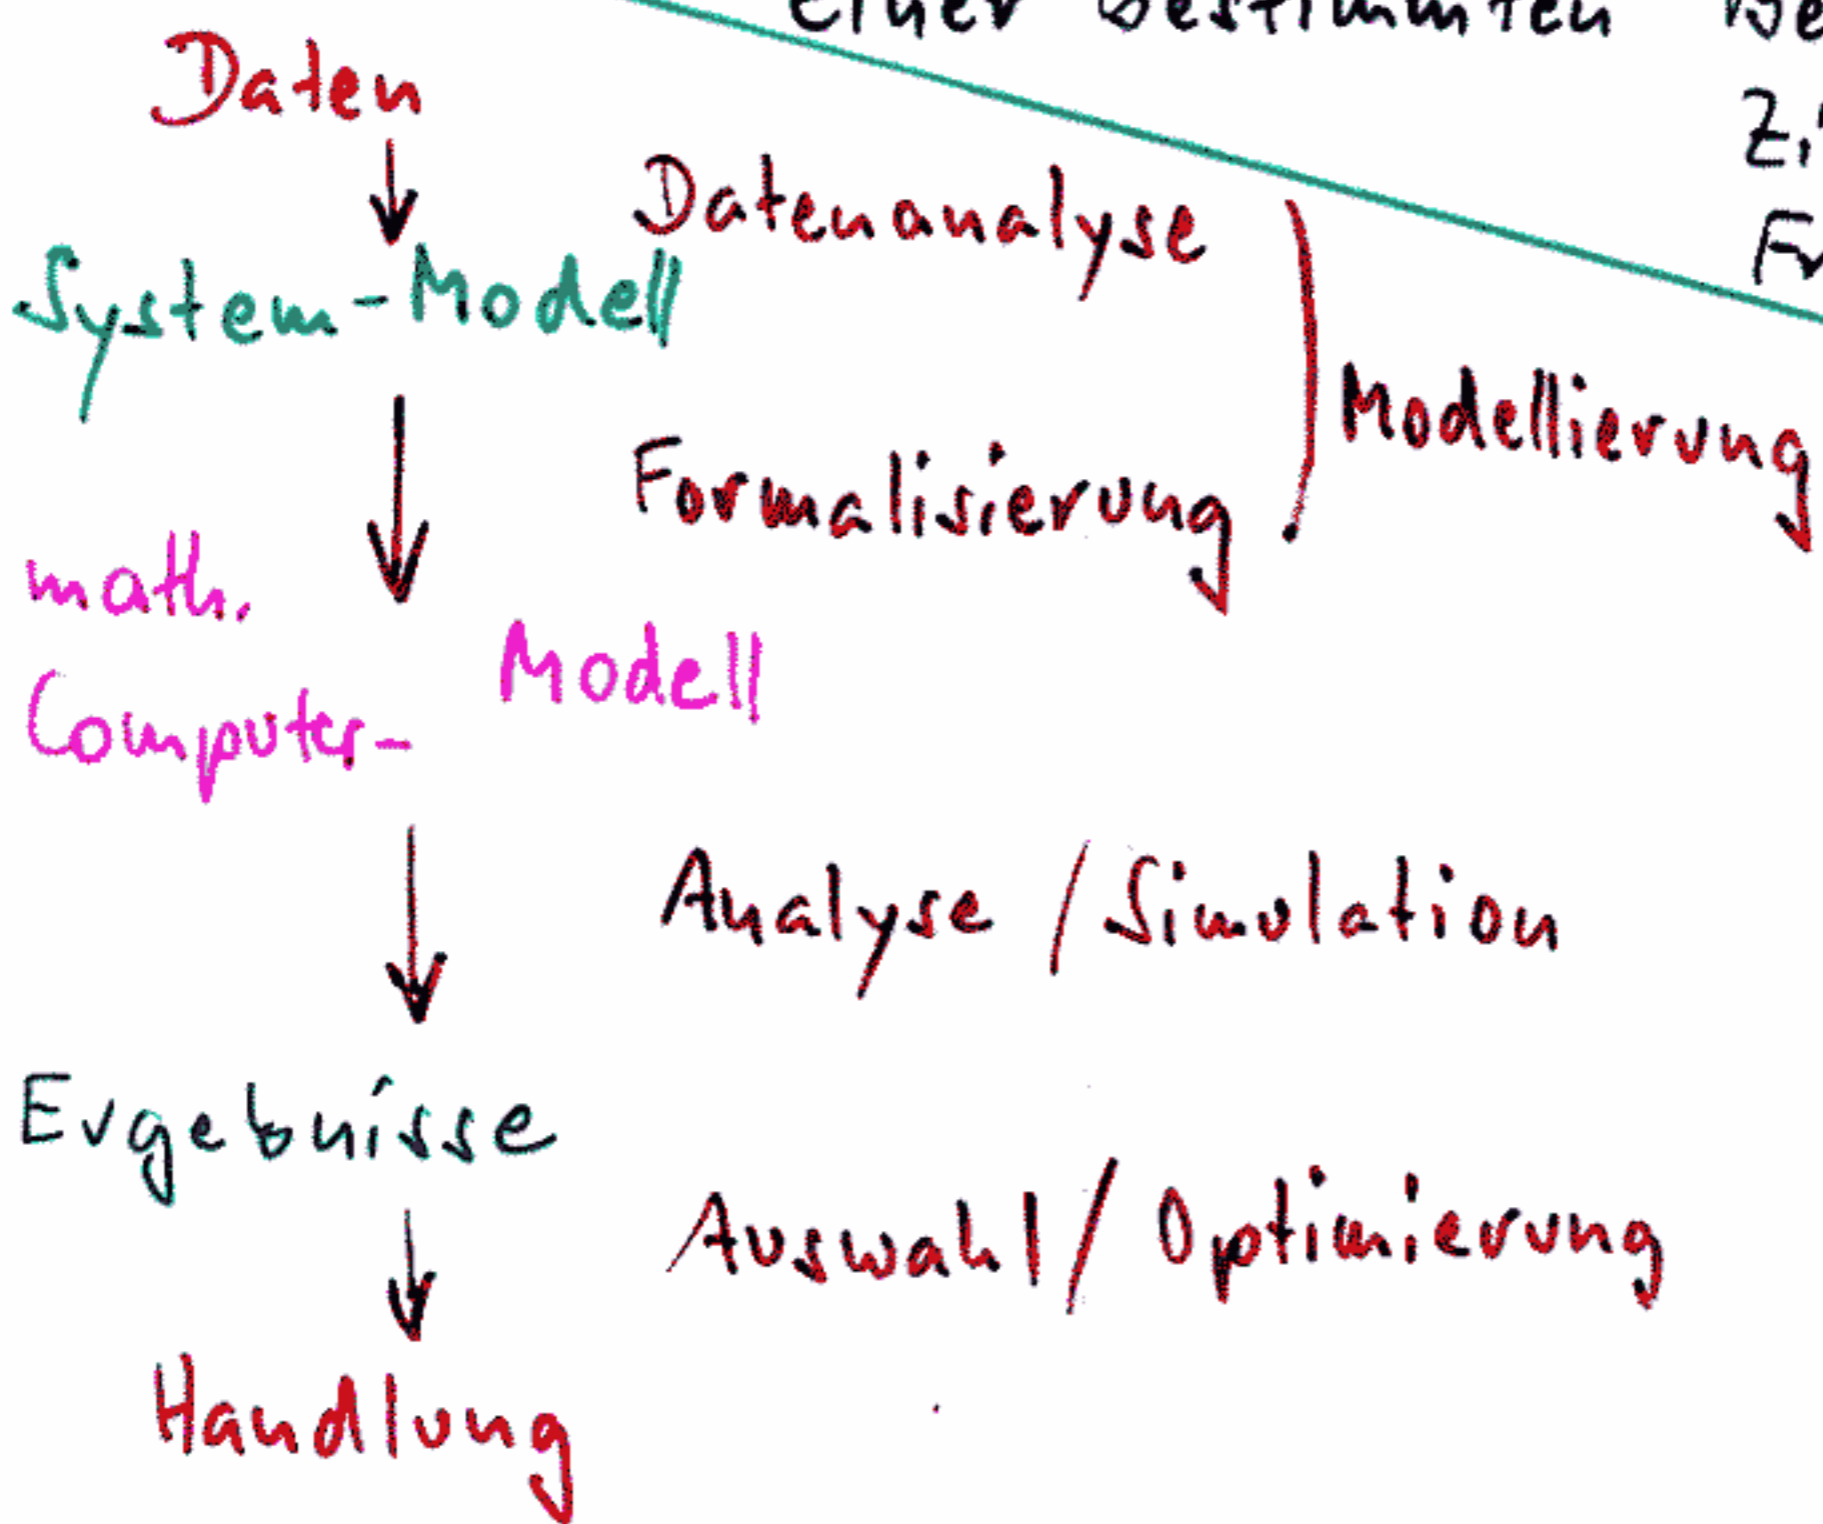 einer bestimmten
Daten
Datenanalyse
System-Modell
Modellierung
Formalisierung
math.
Modell
Computer-
Analyse / Simulation
Ergebnisse
Auswahl / Optimierung
Handlung